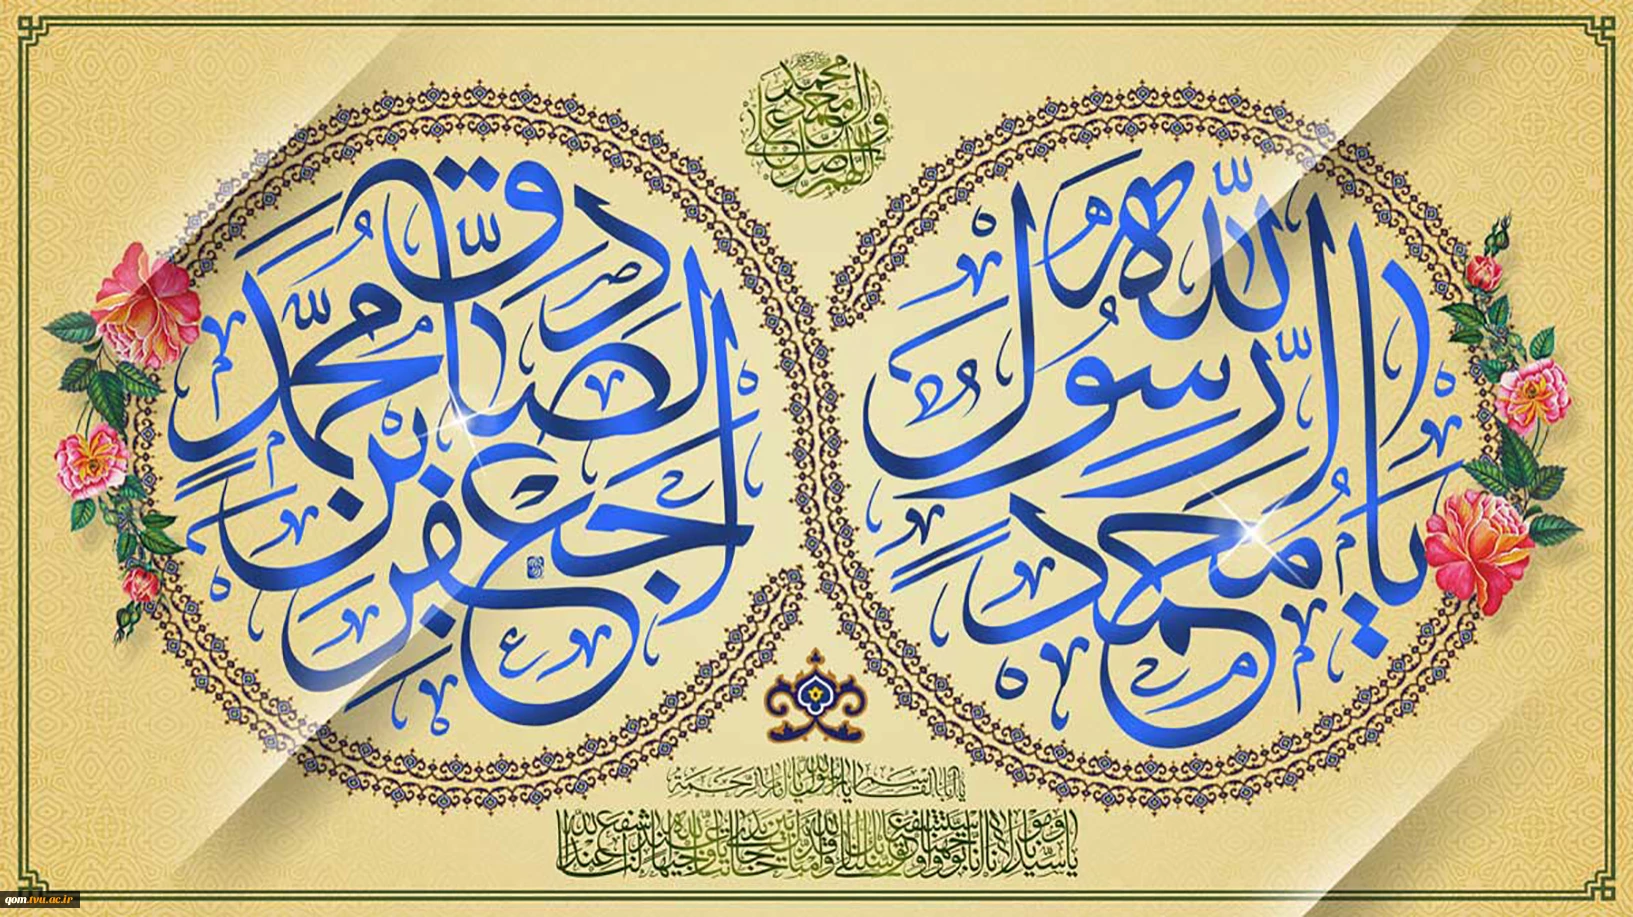 اللهم صل علی محمد وال محمد
یا مُحَمَّد الرَّسُولُ اللّٰه
جَعْفَرِ بْنِ مُحَمَّد الصّادِق
یا ابا القاسم یا رسول الله یا امام الرحمة
یا سیدنا و مولانا انا توجهنا و استشفعنا و توسلنا بک الی الله و قدمناک بین یدی حاجاتنا یا وجیها عند الله اشفع لنا عند الله
qom.tvu.ac.ir